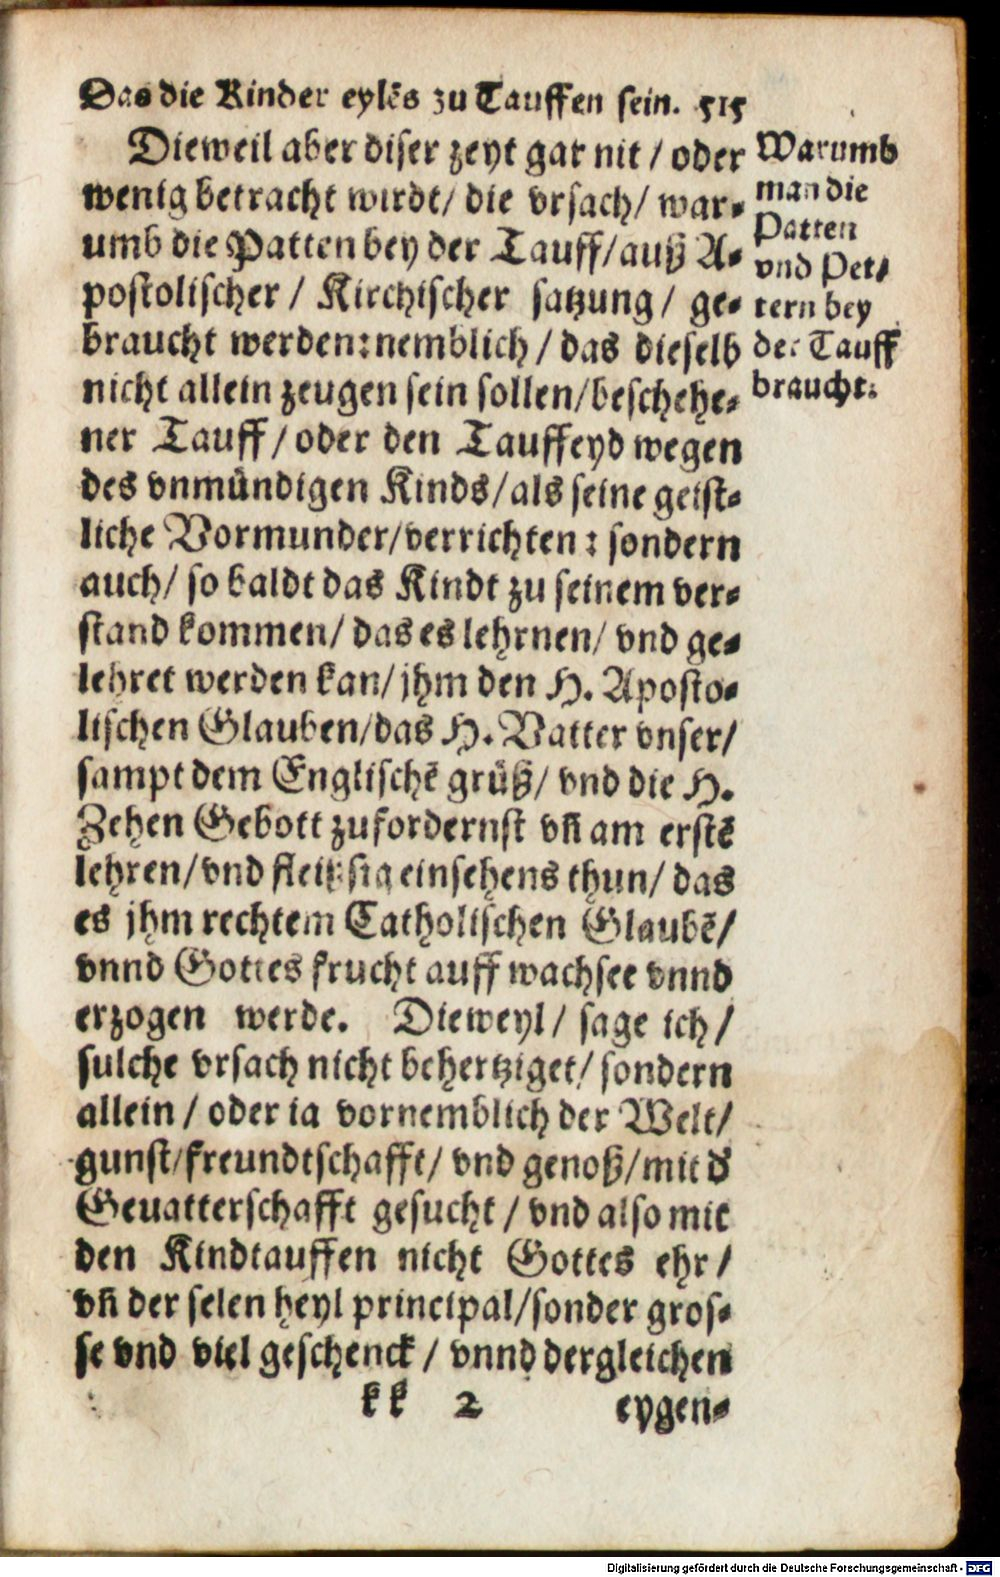 Das die Kinder eylẽs zu Tauffen sein. 515
Dieweil aber diser zeyt gar nit / oder
wenig betracht wirdt / die vrsach / war-
umb die Patten bey der Tauff / auß A-
postolischer / Kirchischer satzung / ge-
braucht werden: nemblich / das dieselb
nicht allein zeugen sein sollen / beschehe-
ner Tauff / oder den Tauffeyd wegen
des vnmündigen Kinds / als seine geist-
liche Vormunder / verrichten: sondern
auch / so baldt das Kindt zu seinem ver-
stand kommen / das es lehrnen / vnd ge-
lehret werden kan / jhm den H. Aposto-
lischen Glauben / das H. Vatter vnser /
sampt dem Englischẽ grüß / vnd die H.
Zehen Gebott zufordernst vñ am erstẽ
lehren / vnd fleissig einsehens thun / das
es jhm rechtem Catholischen Glaubẽ /
vnnd Gottes frucht auff wachsee vnnd
erzogen werde. Dieweyl / sage ich /
sulche vrsach nicht behertziget / sondern
allein / oder ia vornemblich der Welt /
gunst / freundtschafft / vnd genoß / mit d'
Geuatterschafft gesucht / vnd also mit
den Kindtauffen nicht Gottes ehr /
vñ der selen heyl principal / sonder gros-
se vnd viel geschenck / vnnd dergleichen
kk 2 eygen-
Warumb
man die
Patten
vnd Pet-
tern bey
der Tauff
braucht.
Digitalisierung gefördert durch die Deutsche Forschungsgemeinschaft - DFG